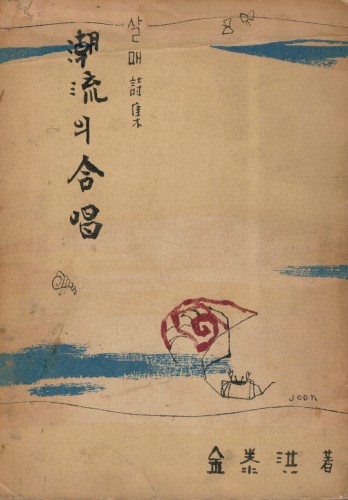 살매詩集
潮流의合唱
joon
金泰洪 著